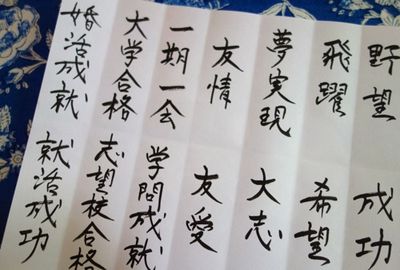 野望
成功
飛躍
希望
夢実現
大志
友情
友愛
一期一会
学問成就
大学合格
志望校合格
婚活成就
就活成功